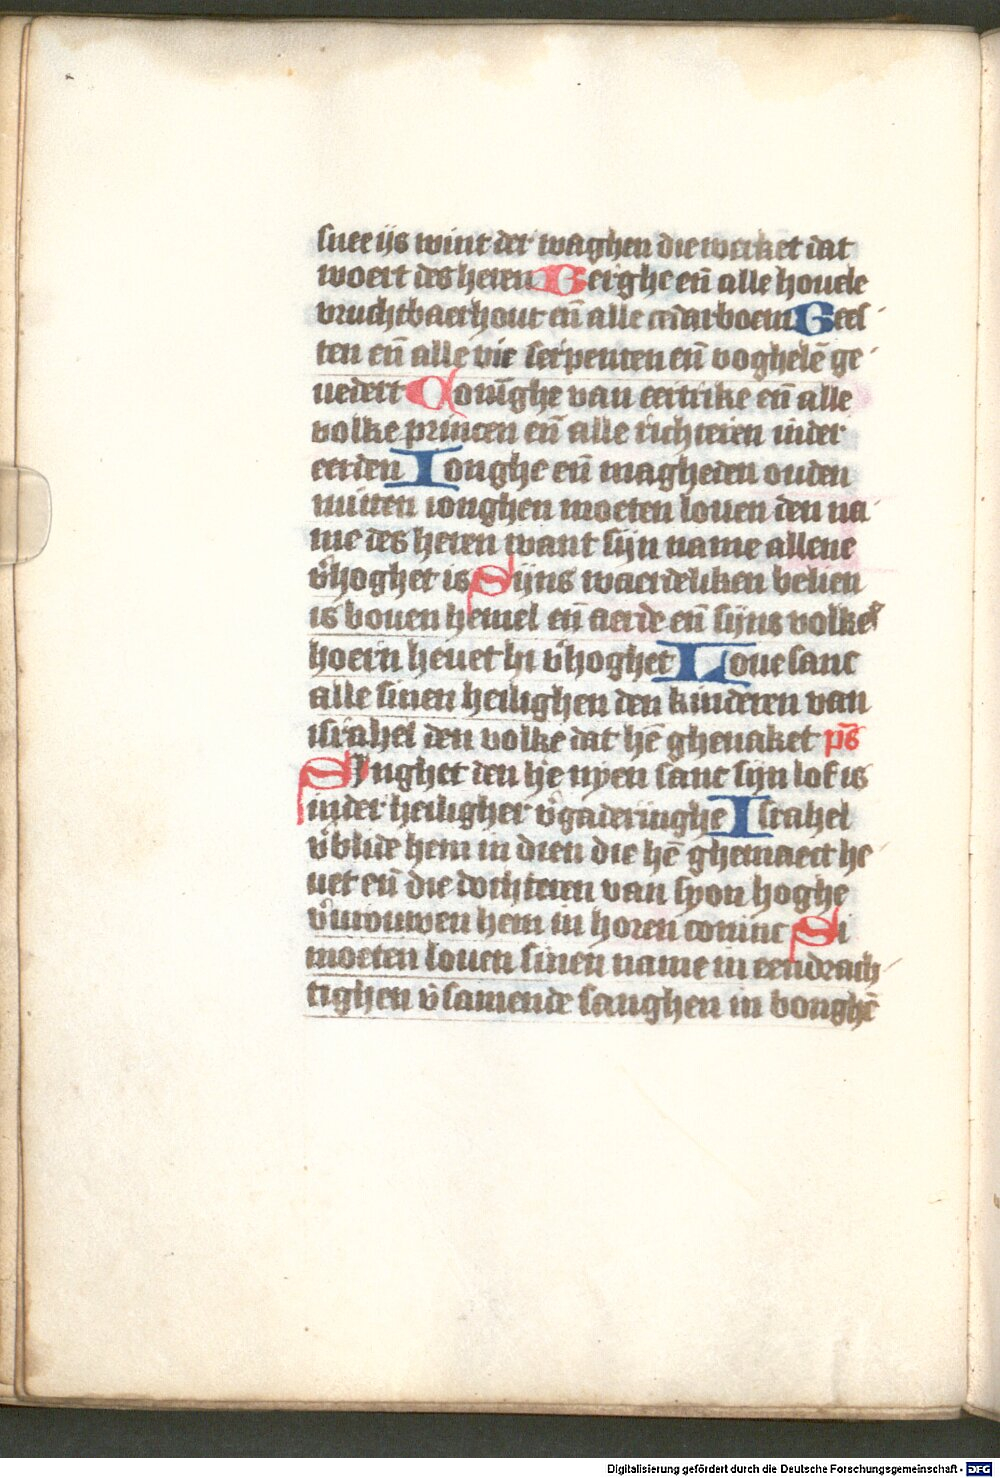 snee ijs wint der waghen die wercket dat
woert des heren Berghe eñ alle houele
vruchtbaerhout eñ alle cedarboem Bees
ten eñ alle vie serpenten eñ voghelē ge
uedert Conīghe van eertrike eñ alle
volke princen eñ alle richteren inder
eerden Ionghe eñ magheden ouden
mitten ionghen moeten louen den na
me des heren want sijn name allene
v̉hoghet is Sijns waerdeliken belien
is bouen hemel eñ aerde eñ sijns volkes
hoern heuet hi v̉hoghet Loue sanc
alle sinen heilighen den kinderen van
israhel den volke dat hē ghenaket ps̄
SInghet den he nyen sanc sijn lof is
inder heiligher v̉gaderinghe Israhel
v̉blide hem in dien die hē ghemaect he
uet eñ die dochteren van syon hoghe
v̉urouwen hem in horen coninc Si
moeten louen sinen name in eendrach
tighen v̉samende sanghen in bonghē
Digitalisierung gefördert durch die Deutsche Forschungsgemeinschaft - DFG